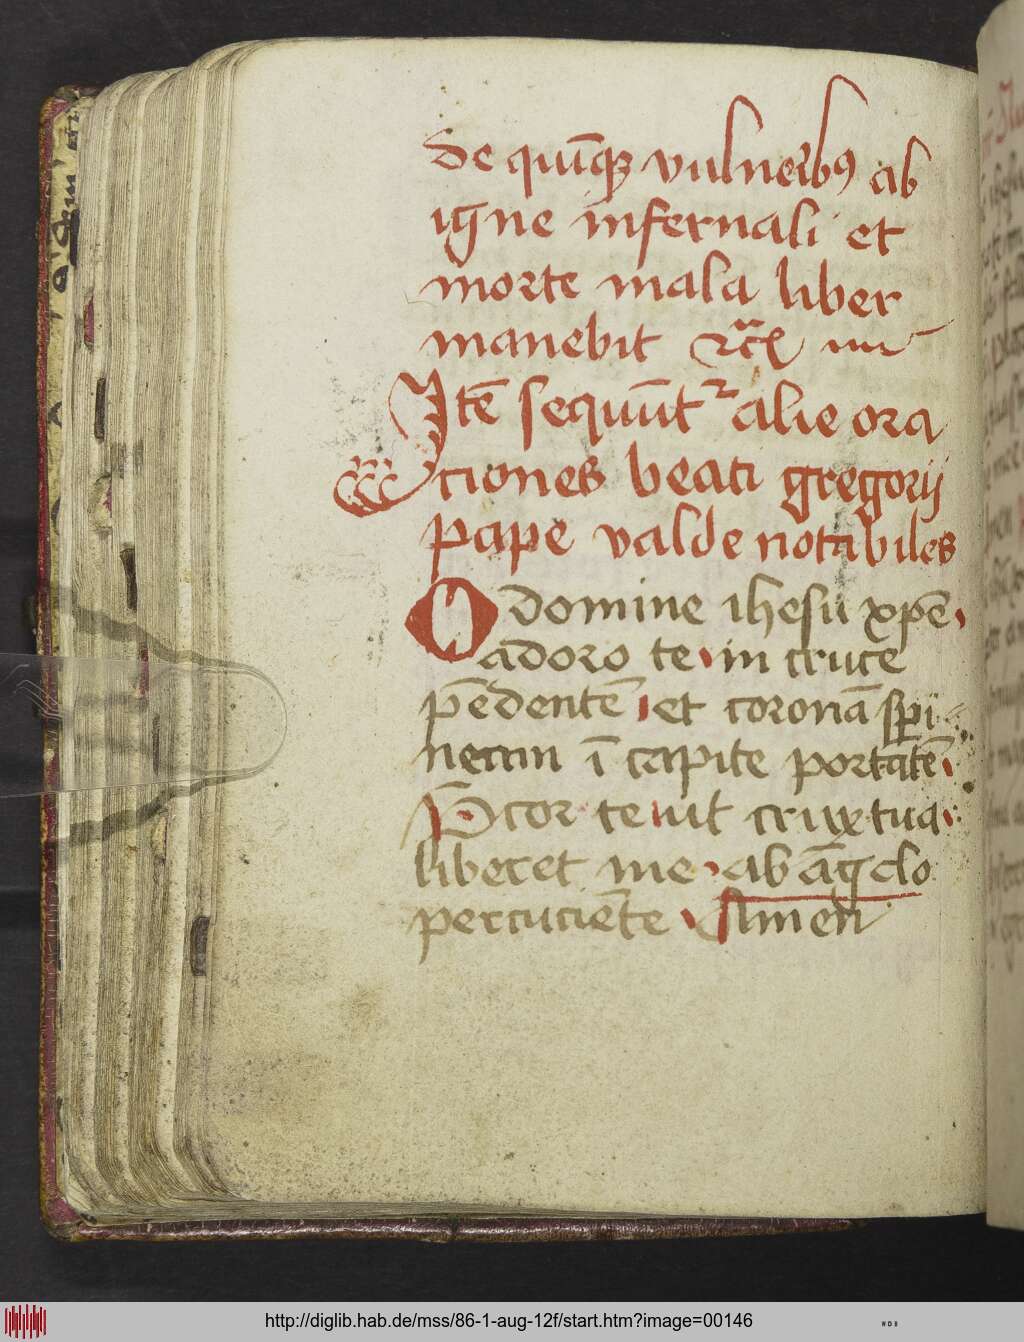 de quīq₃ vulnerib₉ ab
igne infernali et
morte mala liber
manebit
Itē sequūt᷑ alie ora
tiones beati gregorij
pape valde notabiles
O domine ihesu xp̄e
adoro te in cruce
pēdentē et coronā spi
neam ī capite portātē
Precor te ut crux tua
liberet me ab āgelo
percuciēte Amen
http://diglib.hab.de/mss/86-1-aug-12f/start.htm?image=00146